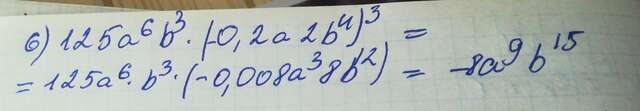 6) 125a⁶b³ · (-0,2a2b⁴)³ =
= 125a⁶ · b³ · (-0,008a³8b¹²) = -8a⁹b¹⁵